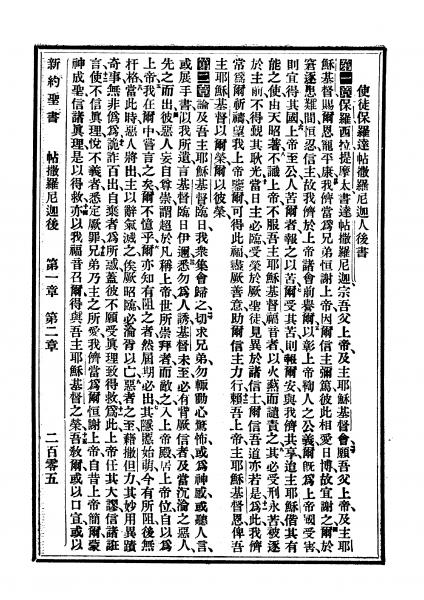 使徒保羅達帖撒羅尼迦人後書
第一章保羅西拉提摩太書達帖撒羅尼迦宗吾父上帝及主耶穌基督會願吾父上帝及主耶
穌基督賜爾恩寵平康我儕當爲兄弟恒謝上帝因爾信主彌篤彼此相愛日博故宜謝之爾於
窘逐患難間恒忍信主故我儕於上帝諸會前譽爾以彰上帝鞫人之公義爾旣爲上帝國受害
則宜得其國上帝至公人苦爾者報之以苦爾受其苦則報爾安與我儕共享迨主耶穌偕其有
能之使由天昭著不識上帝不服吾主耶穌基督福音者以火爇而譴責之其必受刑永苦被逐
於主前不得覩其耿光當日主必臨受榮於厥聖徒見異於諸信士爾信吾道亦若是爲此我儕
常爲爾祈禱望我上帝鑒爾可得此福盛厥善意助爾信主力行賴吾上帝主耶穌基督恩俾吾
主耶穌基督以爾榮爾以彼榮
第二章論及吾主耶穌基督臨日我衆集會歸之切求兄弟勿輒動心驚怖或爲神感或聽人言
或展手書以我所遺言基督臨日伊邇悉勿爲人誘基督未至必有背厥信者及當沉淪之惡人
先之而出彼惡人妄自尊崇謂超於凡稱上帝世所崇拜者而敵之入上帝殿居上帝位自以爲
上帝我在爾中嘗言之矣爾不憶乎爾亦知有阻之者然屆期必出其隱慝始萌今有所阻後無
扞格當此時惡人將出主以辭氣滅之俟厥昭臨必淪胥以亡惡者之至藉撒但力其妙用異蹟
奇事無非僞爲詭詐百出自棄者爲所惑蓋彼不願受眞理致得救爲此上帝任其大謬信諸誑
言使不信眞理悅不義者悉定厥罪兄弟乃主之所愛我儕當爲爾恒謝上帝自昔上帝簡爾蒙
神成聖信諸眞理是以得救亦以我福音召爾得與吾主耶穌基督之榮吾敎爾或以口宣或以
新約聖書 帖撒羅尼迦後 第一章 第二章 二百零五